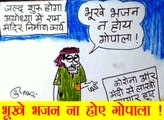 जल्द शुरू होगा
अयोध्या में राम
मंदिर निर्माण कार्य
भूखे भजन न
होय गोपाला!
कोरोना और
मंदी से लाखों
भूखे भजन ना होए गोपाला !